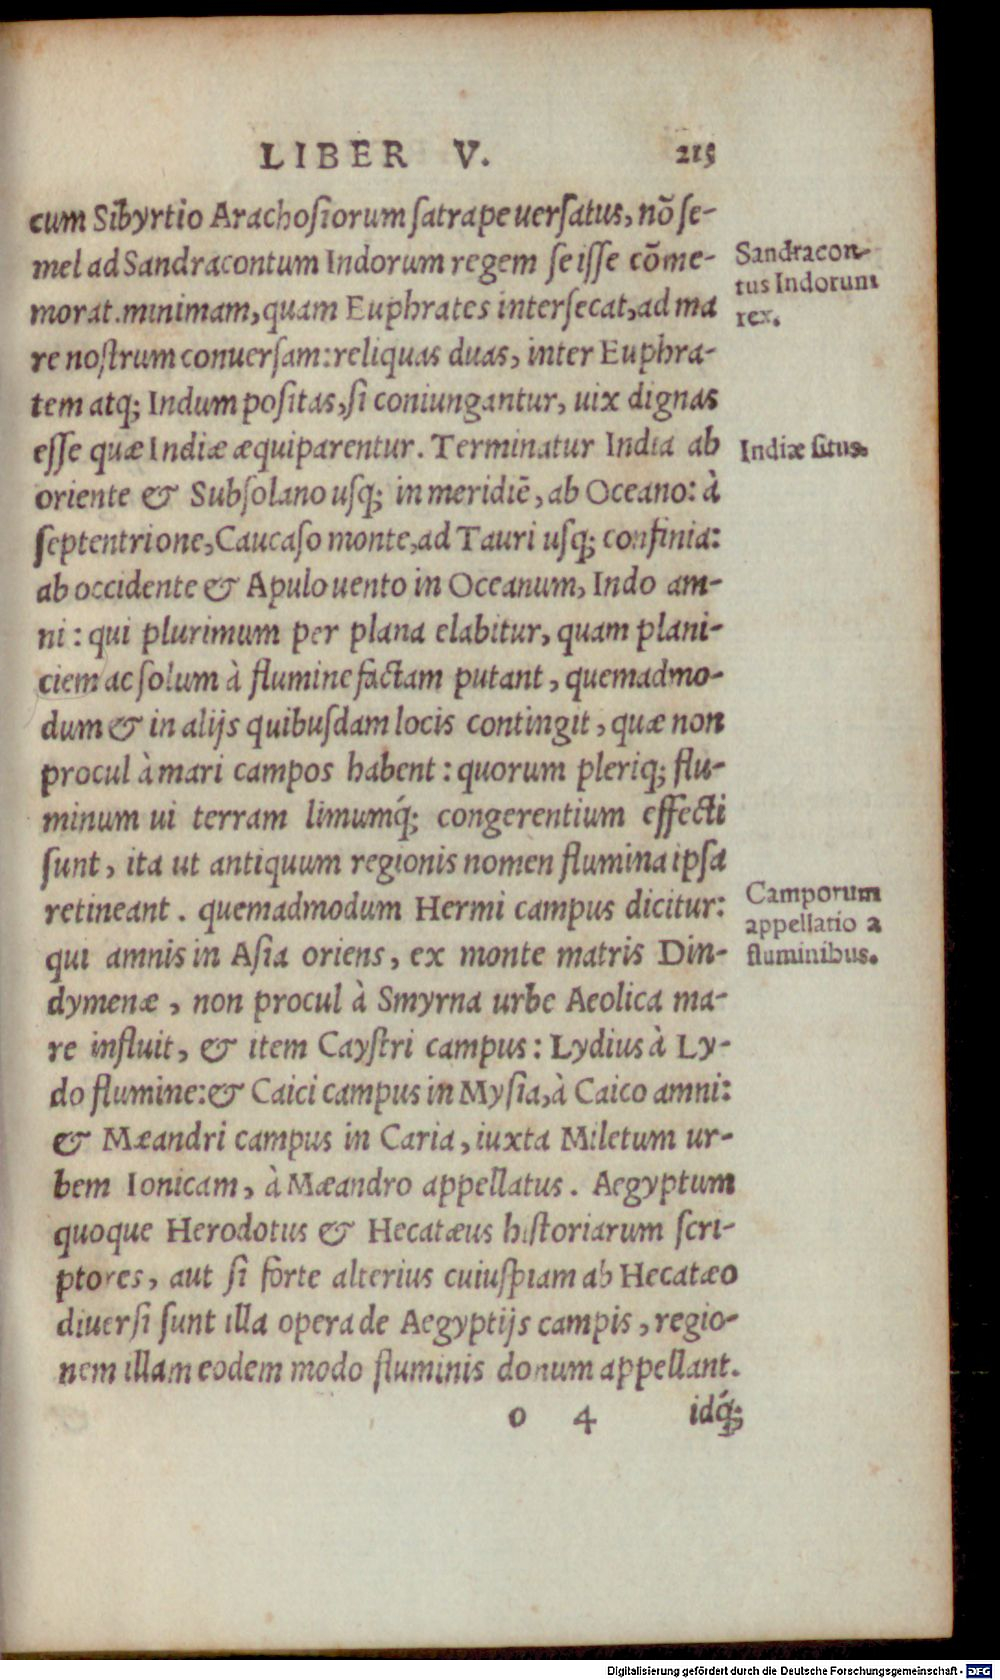 LIBER V. 215
cum Sibyrtio Arachosiorum satrape uersatus, nō se-
mel ad Sandracontum Indorum regem se isse cōme-
morat. minimam, quam Euphrates intersecat, ad ma
re nostrum conuersam: reliquas duas, inter Euphra-
tem atq; Indum positas, si coniungantur, uix dignas
esse quæ Indiæ æquiparentur. Terminatur India ab
oriente & Subsolano usq; in meridiē, ab Oceano: à
septentrione, Caucaso monte, ad Tauri usq; confinia:
ab occidente & Apulo uento in Oceanum, Indo am-
ni: qui plurimum per plana elabitur, quam plani-
ciem ac solum à flumine factam putant, quemadmo-
dum & in alijs quibusdam locis contingit, quæ non
procul à mari campos habent: quorum pleriq; flu-
minum ui terram limumq́; congerentium effecti
sunt, ita ut antiquum regionis nomen flumina ipsa
retineant. quemadmodum Hermi campus dicitur:
qui amnis in Asia oriens, ex monte matris Din-
dymenæ, non procul à Smyrna urbe Aeolica ma-
re influit, & item Caystri campus: Lydius à Ly-
do flumine: & Caici campus in Mysia, à Caico amni:
& Mæandri campus in Caria, iuxta Miletum ur-
bem Ionicam, à Mæandro appellatus. Aegyptum
quoque Herodotus & Hecatæus historiarum scri-
ptores, aut si forte alterius cuiuspiam ab Hecatæo
diuersi sunt illa opera de Aegyptijs campis, regio-
nem illam eodem modo fluminis donum appellant.
o 4 idq́;
Sandracon-
tus Indorum
rex.
Indiæ situs.
Camporum
appellatio a
fluminibus.
Digitalisierung gefördert durch die Deutsche Forschungsgemeinschaft - DFG